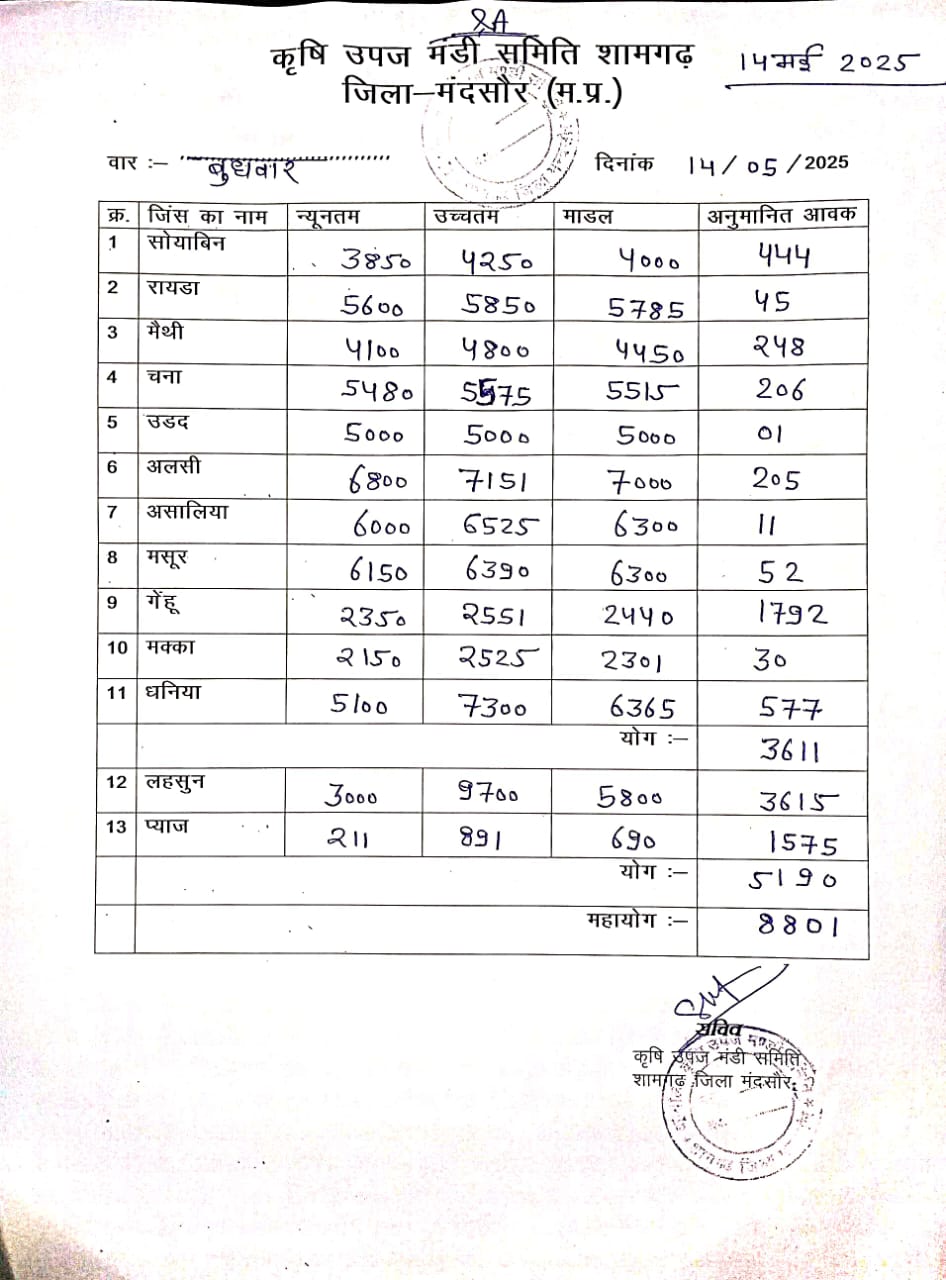 कृषि उपज मंडी समिति शामगढ़
१४ मई 2025
जिला–मंदसौर (म.प्र.)
वार :– बुधवार दिनांक १४/०५/2025
क्र. जिंस का नाम न्यूनतम उच्चतम माडल अनुमानित आवक
1 सोयाबिन 3850 4250 4000 444
2 रायडा 5600 5850 5785 45
3 मैथी 4100 4800 4450 248
4 चना 5480 5575 5515 206
5 उडद 5000 5000 5000 01
6 अलसी 6800 7151 7000 205
7 असालिया 6000 6525 6300 11
8 मसूर 6150 6390 6300 52
9 गेंहू 2350 2551 2440 1792
10 मक्का 2150 2525 2301 30
11 धनिया 5100 7300 6365 577
योग :– 3611
12 लहसुन 3000 9700 5800 3615
13 प्याज 211 891 690 1575
योग :– 5190
महायोग :– 8801
सचिव
कृषि उपज मंडी समिति
शामगढ़ जिला मंदसौर